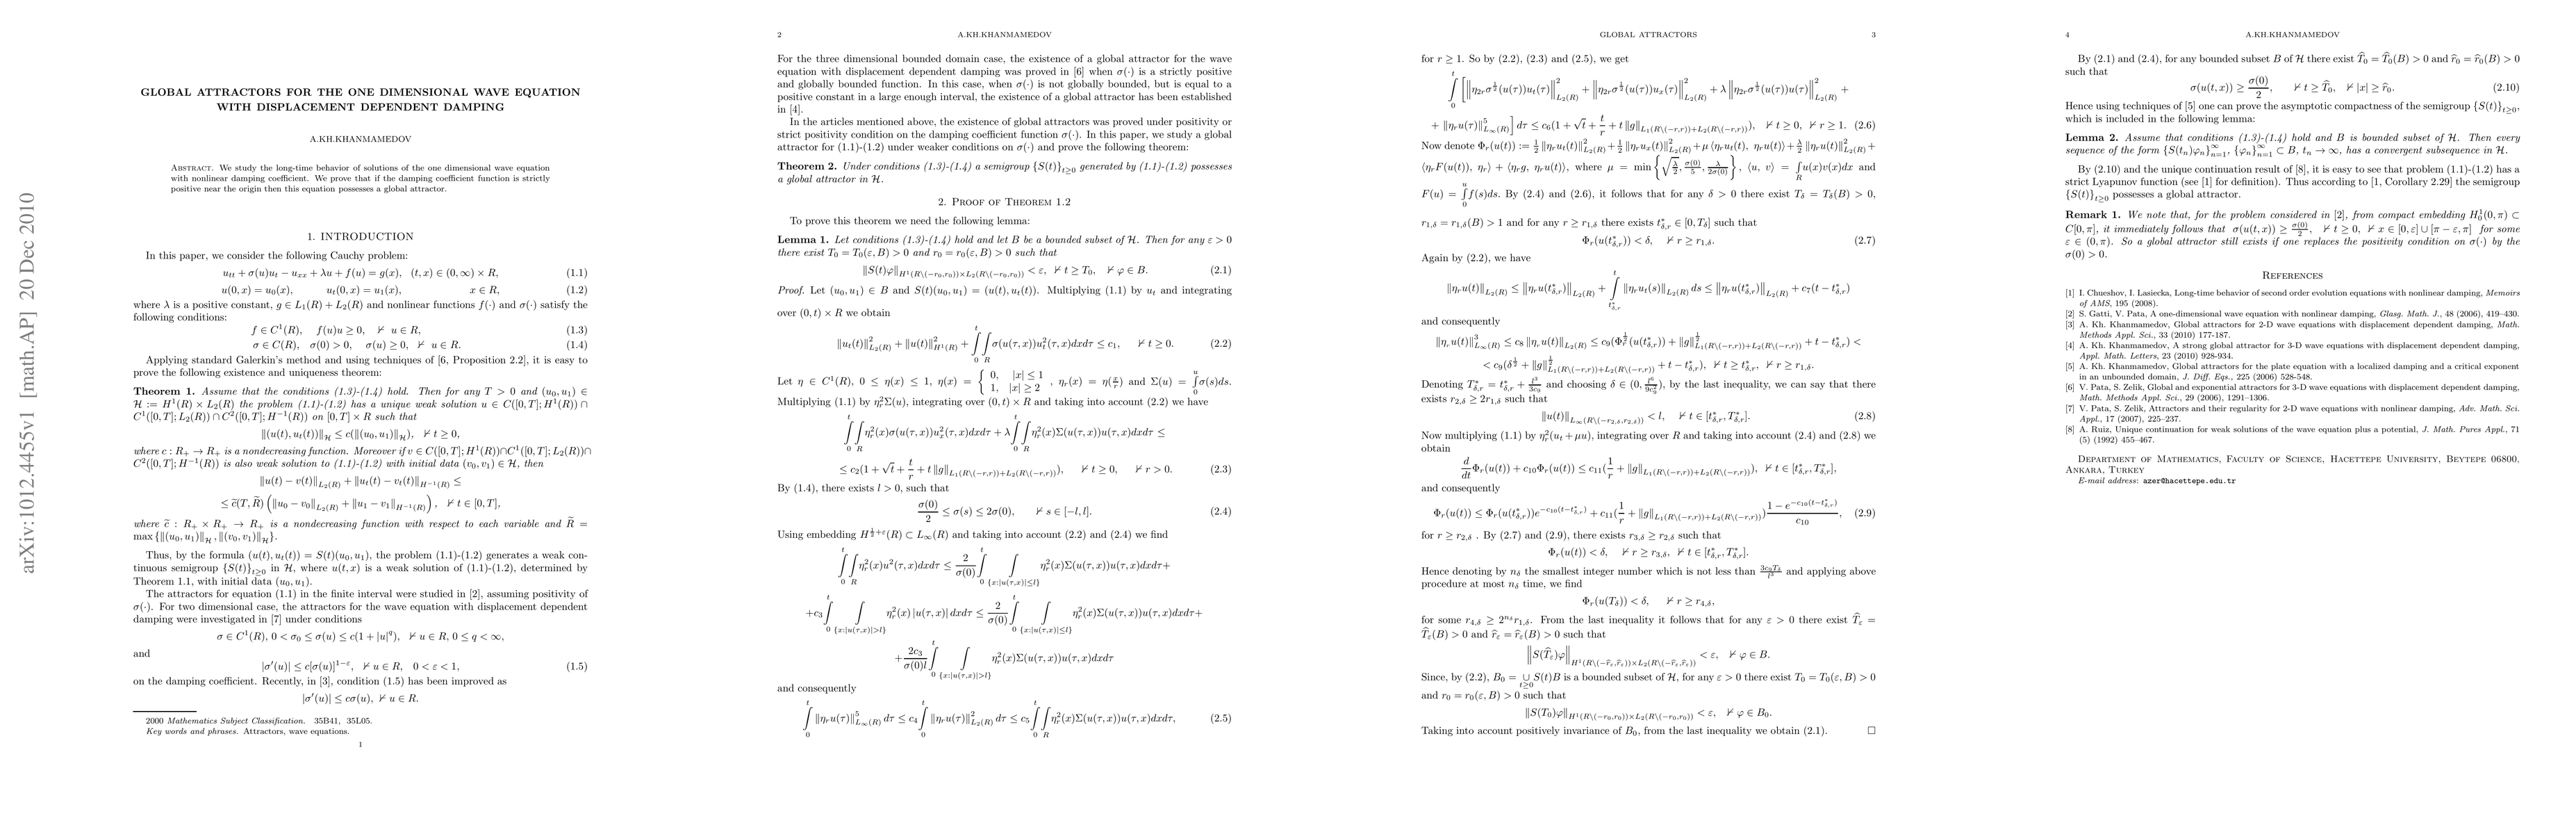 arXiv:1012.4455v1 [math.AP] 20 Dec 2010
GLOBAL ATTRACTORS FOR THE ONE DIMENSIONAL WAVE EQUATION
WITH DISPLACEMENT DEPENDENT DAMPING
A.KH.KHANMAMEDOV
Abstract. We study the long-time behavior of solutions of the one dimensional wave equation
with nonlinear damping coefficient. We prove that if the damping coefficient function is strictly
positive near the origin then this equation possesses a global attractor.
1. INTRODUCTION
In this paper, we consider the following Cauchy problem:
u_{tt} + σ(u)u_t − u_{xx} + λu + f(u) = g(x), (t, x) ∈ (0, ∞) × R, (1.1)
u(0, x) = u_0(x), u_t(0, x) = u_1(x), x ∈ R, (1.2)
where λ is a positive constant, g ∈ L_1(R) + L_2(R) and nonlinear functions f(·) and σ(·) satisfy the
following conditions:
f ∈ C^1(R), f(u)u ≥ 0, ∀ u ∈ R, (1.3)
σ ∈ C(R), σ(0) > 0, σ(u) ≥ 0, ∀ u ∈ R. (1.4)
Applying standard Galerkin's method and using techniques of [6, Proposition 2.2], it is easy to
prove the following existence and uniqueness theorem:
Theorem 1. Assume that the conditions (1.3)-(1.4) hold. Then for any T > 0 and (u_0, u_1) ∈
H := H^1(R) × L_2(R) the problem (1.1)-(1.2) has a unique weak solution u ∈ C([0, T]; H^1(R)) ∩
C^1([0, T]; L_2(R)) ∩ C^2([0, T]; H^{-1}(R)) on [0, T] × R such that
‖(u(t), u_t(t))‖_H ≤ c(‖(u_0, u_1)‖_H), ∀ t ≥ 0,
where c : R_+ → R_+ is a nondecreasing function. Moreover if v ∈ C([0, T]; H^1(R))∩C^1([0, T]; L_2(R))∩
C^2([0, T]; H^{-1}(R)) is also weak solution to (1.1)-(1.2) with initial data (v_0, v_1) ∈ H, then
‖u(t) − v(t)‖_{L_2(R)} + ‖u_t(t) − v_t(t)‖_{H^{-1}(R)} ≤
≤ c̃(T, R̃) (‖u_0 − v_0‖_{L_2(R)} + ‖u_1 − v_1‖_{H^{-1}(R)}), ∀ t ∈ [0, T],
where c̃ : R_+ × R_+ → R_+ is a nondecreasing function with respect to each variable and R̃ =
max {‖(u_0, u_1)‖_H, ‖(v_0, v_1)‖_H}.
Thus, by the formula (u(t), u_t(t)) = S(t)(u_0, u_1), the problem (1.1)-(1.2) generates a weak con-
tinuous semigroup {S(t)}_{t≥0} in H, where u(t, x) is a weak solution of (1.1)-(1.2), determined by
Theorem 1.1, with initial data (u_0, u_1).
The attractors for equation (1.1) in the finite interval were studied in [2], assuming positivity of
σ(·). For two dimensional case, the attractors for the wave equation with displacement dependent
damping were investigated in [7] under conditions
σ ∈ C^1(R), 0 < σ_0 ≤ σ(u) ≤ c(1 + |u|^q), ∀ u ∈ R, 0 ≤ q < ∞,
and
|σ′(u)| ≤ c[σ(u)]^{1−ε}, ∀ u ∈ R, 0 < ε < 1, (1.5)
on the damping coefficient. Recently, in [3], condition (1.5) has been improved as
|σ′(u)| ≤ cσ(u), ∀ u ∈ R.
2000 Mathematics Subject Classification. 35B41, 35L05.
Key words and phrases. Attractors, wave equations.
1
2 A.KH.KHANMAMEDOV
For the three dimensional bounded domain case, the existence of a global attractor for the wave
equation with displacement dependent damping was proved in [6] when σ(·) is a strictly positive
and globally bounded function. In this case, when σ(·) is not globally bounded, but is equal to a
positive constant in a large enough interval, the existence of a global attractor has been established
in [4].
In the articles mentioned above, the existence of global attractors was proved under positivity or
strict positivity condition on the damping coefficient function σ(·). In this paper, we study a global
attractor for (1.1)-(1.2) under weaker conditions on σ(·) and prove the following theorem:
Theorem 2. Under conditions (1.3)-(1.4) a semigroup {S(t)}_{t≥0} generated by (1.1)-(1.2) possesses
a global attractor in H.
2. Proof of Theorem 1.2
To prove this theorem we need the following lemma:
Lemma 1. Let conditions (1.3)-(1.4) hold and let B be a bounded subset of H. Then for any ε > 0
there exist T_0 = T_0(ε, B) > 0 and r_0 = r_0(ε, B) > 0 such that
‖S(t)φ‖_{H^1(R\(−r_0,r_0))×L_2(R\(−r_0,r_0))} < ε, ∀ t ≥ T_0, ∀ φ ∈ B. (2.1)
Proof. Let (u_0, u_1) ∈ B and S(t)(u_0, u_1) = (u(t), u_t(t)). Multiplying (1.1) by u_t and integrating
over (0, t) × R we obtain
‖u_t(t)‖²_{L_2(R)} + ‖u(t)‖²_{H^1(R)} + ∫_0^t ∫_R σ(u(τ, x))u_t²(τ, x)dxdτ ≤ c_1, ∀ t ≥ 0. (2.2)
Let η ∈ C^1(R), 0 ≤ η(x) ≤ 1, η(x) = { 0, |x| ≤ 1; 1, |x| ≥ 2 , η_r(x) = η(x/r) and Σ(u) = ∫_0^u σ(s)ds.
Multiplying (1.1) by η_r²Σ(u), integrating over (0, t) × R and taking into account (2.2) we have
∫_0^t ∫_R η_r²(x)σ(u(τ, x))u_x²(τ, x)dxdτ + λ ∫_0^t ∫_R η_r²(x)Σ(u(τ, x))u(τ, x)dxdτ ≤
≤ c_2(1 + √t + t/r + t ‖g‖_{L_1(R\(−r,r))+L_2(R\(−r,r))}), ∀ t ≥ 0, ∀ r > 0. (2.3)
By (1.4), there exists l > 0, such that
σ(0)/2 ≤ σ(s) ≤ 2σ(0), ∀ s ∈ [−l, l]. (2.4)
Using embedding H^{1/2+ε}(R) ⊂ L_∞(R) and taking into account (2.2) and (2.4) we find
∫_0^t ∫_R η_r²(x)u²(τ, x)dxdτ ≤ 2/σ(0) ∫_0^t ∫_{{x:|u(τ,x)|≤l}} η_r²(x)Σ(u(τ, x))u(τ, x)dxdτ+
+c_3 ∫_0^t ∫_{{x:|u(τ,x)|>l}} η_r²(x) |u(τ, x)| dxdτ ≤ 2/σ(0) ∫_0^t ∫_{{x:|u(τ,x)|≤l}} η_r²(x)Σ(u(τ, x))u(τ, x)dxdτ+
+2c_3/(σ(0)l) ∫_0^t ∫_{{x:|u(τ,x)|>l}} η_r²(x)Σ(u(τ, x))u(τ, x)dxdτ
and consequently
∫_0^t ‖η_r u(τ)‖^5_{L_∞(R)} dτ ≤ c_4 ∫_0^t ‖η_r u(τ)‖²_{L_2(R)} dτ ≤ c_5 ∫_0^t ∫_R η_r²(x)Σ(u(τ, x))u(τ, x)dxdτ, (2.5)
GLOBAL ATTRACTORS 3
for r ≥ 1. So by (2.2), (2.3) and (2.5), we get
∫_0^t [ ‖η_{2r}σ^{1/2}(u(τ))u_t(τ)‖²_{L_2(R)} + ‖η_{2r}σ^{1/2}(u(τ))u_x(τ)‖²_{L_2(R)} + λ ‖η_{2r}σ^{1/2}(u(τ))u(τ)‖²_{L_2(R)} +
+ ‖η_r u(τ)‖^5_{L_∞(R)} ] dτ ≤ c_6(1 + √t + t/r + t ‖g‖_{L_1(R\(−r,r))+L_2(R\(−r,r))}), ∀ t ≥ 0, ∀ r ≥ 1. (2.6)
Now denote Φ_r(u(t)) := 1/2 ‖η_r u_t(t)‖²_{L_2(R)} + 1/2 ‖η_r u_x(t)‖²_{L_2(R)} + μ ⟨η_r u_t(t), η_r u(t)⟩ + λ/2 ‖η_r u(t)‖²_{L_2(R)} +
⟨η_r F(u(t)), η_r⟩ + ⟨η_r g, η_r u(t)⟩, where μ = min{√(λ/2), σ(0)/5, λ/(2σ(0))}, ⟨u, v⟩ = ∫_R u(x)v(x)dx and
F(u) = ∫_0^u f(s)ds. By (2.4) and (2.6), it follows that for any δ > 0 there exist T_δ = T_δ(B) > 0,
r_{1,δ} = r_{1,δ}(B) > 1 and for any r ≥ r_{1,δ} there exists t*_{δ,r} ∈ [0, T_δ] such that
Φ_r(u(t*_{δ,r})) < δ, ∀ r ≥ r_{1,δ}. (2.7)
Again by (2.2), we have
‖η_r u(t)‖_{L_2(R)} ≤ ‖η_r u(t*_{δ,r})‖_{L_2(R)} + ∫_{t*_{δ,r}}^t ‖η_r u_t(s)‖_{L_2(R)} ds ≤ ‖η_r u(t*_{δ,r})‖_{L_2(R)} + c_7(t − t*_{δ,r})
and consequently
‖η_r u(t)‖³_{L_∞(R)} ≤ c_8 ‖η_r u(t)‖_{L_2(R)} ≤ c_9(Φ_r^{1/2}(u(t*_{δ,r})) + ‖g‖^{1/2}_{L_1(R\(−r,r))+L_2(R\(−r,r))} + t − t*_{δ,r}) <
< c_9(δ^{1/2} + ‖g‖^{1/2}_{L_1(R\(−r,r))+L_2(R\(−r,r))} + t − t*_{δ,r}), ∀ t ≥ t*_{δ,r}, ∀ r ≥ r_{1,δ}.
Denoting T*_{δ,r} = t*_{δ,r} + l³/(3c_9) and choosing δ ∈ (0, l⁶/(9c_9²)), by the last inequality, we can say that there
exists r_{2,δ} ≥ 2r_{1,δ} such that
‖u(t)‖_{L_∞(R\(−r_{2,δ},r_{2,δ}))} < l, ∀ t ∈ [t*_{δ,r}, T*_{δ,r}]. (2.8)
Now multiplying (1.1) by η_r²(u_t + μu), integrating over R and taking into account (2.4) and (2.8) we
obtain
d/dt Φ_r(u(t)) + c_{10}Φ_r(u(t)) ≤ c_{11}(1/r + ‖g‖_{L_1(R\(−r,r))+L_2(R\(−r,r))}), ∀ t ∈ [t*_{δ,r}, T*_{δ,r}],
and consequently
Φ_r(u(t)) ≤ Φ_r(u(t*_{δ,r}))e^{−c_{10}(t−t*_{δ,r})} + c_{11}(1/r + ‖g‖_{L_1(R\(−r,r))+L_2(R\(−r,r))}) (1 − e^{−c_{10}(t−t*_{δ,r})})/c_{10}, (2.9)
for r ≥ r_{2,δ} . By (2.7) and (2.9), there exists r_{3,δ} ≥ r_{2,δ} such that
Φ_r(u(t)) < δ, ∀ r ≥ r_{3,δ}, ∀ t ∈ [t*_{δ,r}, T*_{δ,r}].
Hence denoting by n_δ the smallest integer number which is not less than 3c_9T_δ/l³ and applying above
procedure at most n_δ time, we find
Φ_r(u(T_δ)) < δ, ∀ r ≥ r_{4,δ},
for some r_{4,δ} ≥ 2^{n_δ}r_{1,δ}. From the last inequality it follows that for any ε > 0 there exist T̂_ε =
T̂_ε(B) > 0 and r̂_ε = r̂_ε(B) > 0 such that
‖S(T̂_ε)φ‖_{H^1(R\(−r̂_ε,r̂_ε))×L_2(R\(−r̂_ε,r̂_ε))} < ε, ∀ φ ∈ B.
Since, by (2.2), B_0 = ∪_{t≥0} S(t)B is a bounded subset of H, for any ε > 0 there exist T_0 = T_0(ε, B) > 0
and r_0 = r_0(ε, B) > 0 such that
‖S(T_0)φ‖_{H^1(R\(−r_0,r_0))×L_2(R\(−r_0,r_0))} < ε, ∀ φ ∈ B_0.
Taking into account positively invariance of B_0, from the last inequality we obtain (2.1). □
4 A.KH.KHANMAMEDOV
By (2.1) and (2.4), for any bounded subset B of H there exist T̂_0 = T̂_0(B) > 0 and r̂_0 = r̂_0(B) > 0
such that
σ(u(t, x)) ≥ σ(0)/2, ∀ t ≥ T̂_0, ∀ |x| ≥ r̂_0. (2.10)
Hence using techniques of [5] one can prove the asymptotic compactness of the semigroup {S(t)}_{t≥0},
which is included in the following lemma:
Lemma 2. Assume that conditions (1.3)-(1.4) hold and B is bounded subset of H. Then every
sequence of the form {S(t_n)φ_n}_{n=1}^∞, {φ_n}_{n=1}^∞ ⊂ B, t_n → ∞, has a convergent subsequence in H.
By (2.10) and the unique continuation result of [8], it is easy to see that problem (1.1)-(1.2) has a
strict Lyapunov function (see [1] for definition). Thus according to [1, Corollary 2.29] the semigroup
{S(t)}_{t≥0} possesses a global attractor.
Remark 1. We note that, for the problem considered in [2], from compact embedding H_0^1(0, π) ⊂
C[0, π], it immediately follows that σ(u(t, x)) ≥ σ(0)/2, ∀ t ≥ 0, ∀ x ∈ [0, ε] ∪ [π − ε, π] for some
ε ∈ (0, π). So a global attractor still exists if one replaces the positivity condition on σ(·) by the
σ(0) > 0.
References
[1] I. Chueshov, I. Lasiecka, Long-time behavior of second order evolution equations with nonlinear damping, Memoirs
of AMS, 195 (2008).
[2] S. Gatti, V. Pata, A one-dimensional wave equation with nonlinear damping, Glasg. Math. J., 48 (2006), 419–430.
[3] A. Kh. Khanmamedov, Global attractors for 2-D wave equations with displacement dependent damping, Math.
Methods Appl. Sci., 33 (2010) 177-187.
[4] A. Kh. Khanmamedov, A strong global attractor for 3-D wave equations with displacement dependent damping,
Appl. Math. Letters, 23 (2010) 928-934.
[5] A. Kh. Khanmamedov, Global attractors for the plate equation with a localized damping and a critical exponent
in an unbounded domain, J. Diff. Eqs., 225 (2006) 528-548.
[6] V. Pata, S. Zelik, Global and exponential attractors for 3-D wave equations with displacement dependent damping,
Math. Methods Appl. Sci., 29 (2006), 1291–1306.
[7] V. Pata, S. Zelik, Attractors and their regularity for 2-D wave equations with nonlinear damping, Adv. Math. Sci.
Appl., 17 (2007), 225–237.
[8] A. Ruiz, Unique continuation for weak solutions of the wave equation plus a potential, J. Math. Pures Appl., 71
(5) (1992) 455–467.
Department of Mathematics, Faculty of Science, Hacettepe University, Beytepe 06800,
Ankara, Turkey
E-mail address: azer@hacettepe.edu.tr